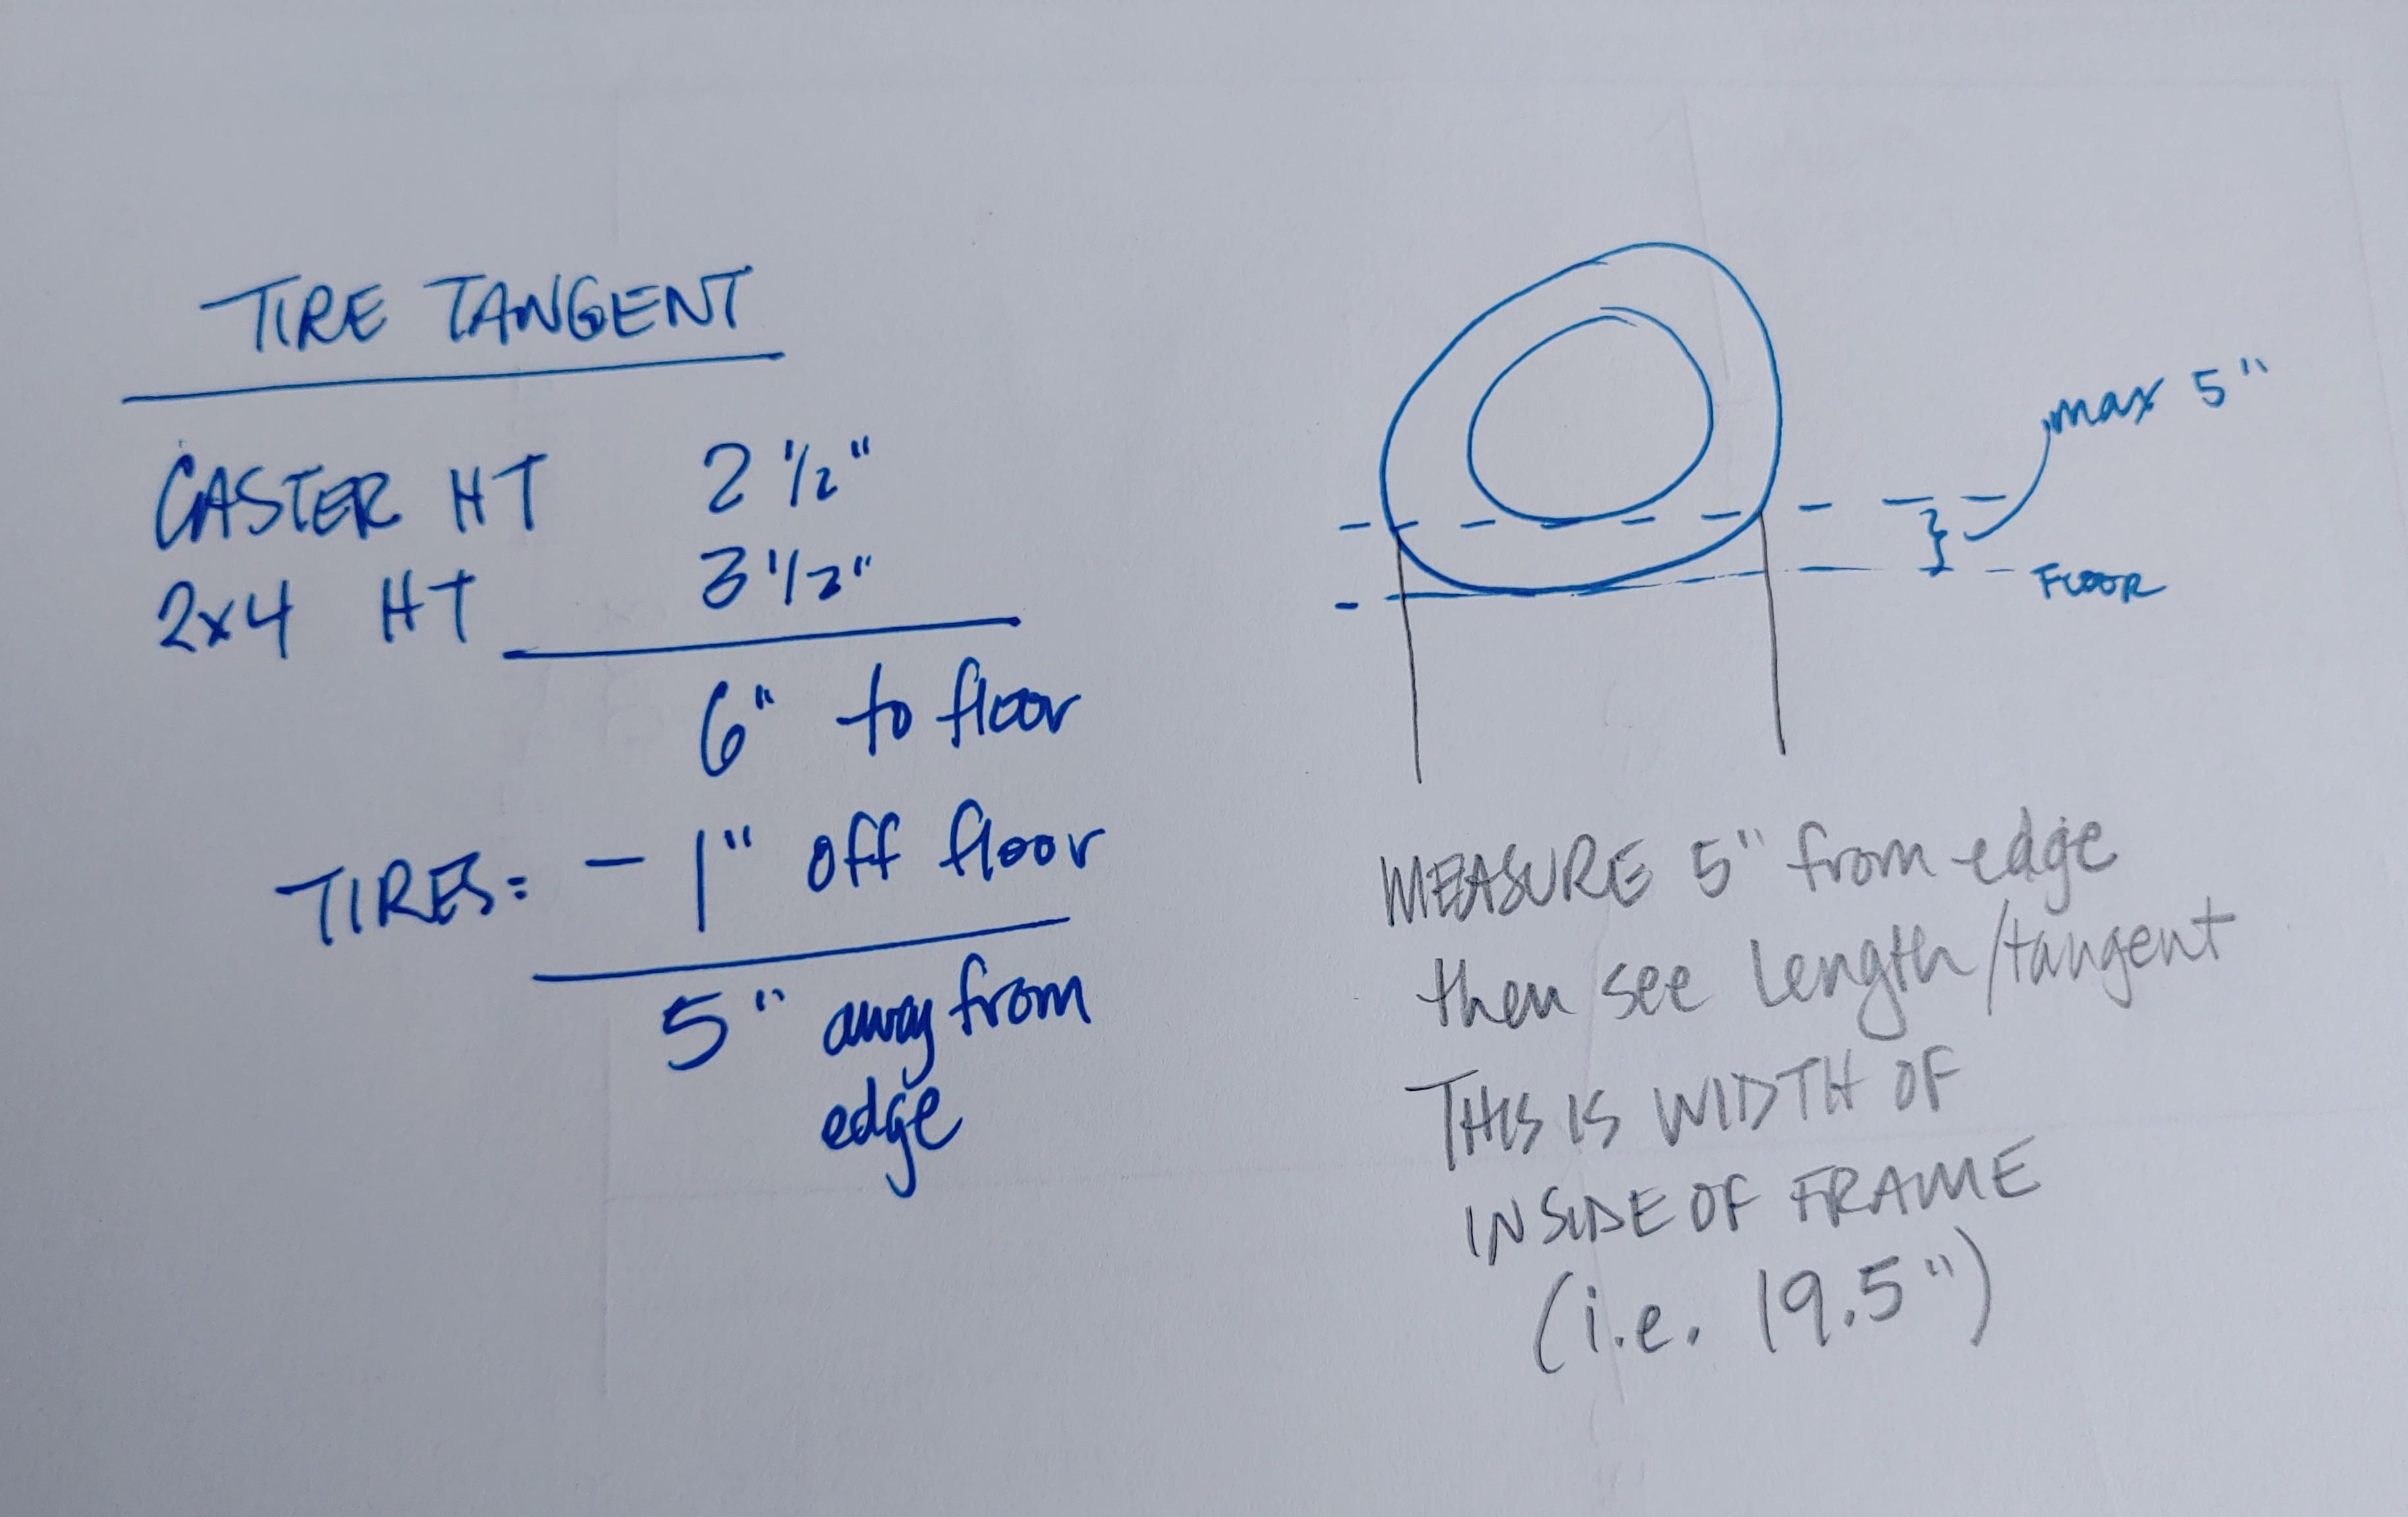 TIRE TANGENT
CASTER HT 2 1/2"
2x4 HT 3 1/2"
6" to floor
TIRES: - 1" off floor
5" away from
edge
max 5"
FLOOR
MEASURE 5" from edge
then see length/tangent
THIS IS WIDTH OF
INSIDE OF FRAME
(i.e. 19.5")